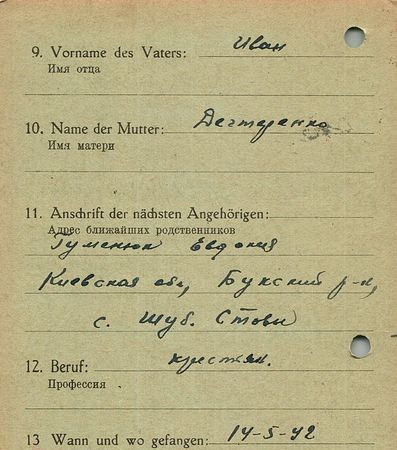 9. Vorname des Vaters: Иван
Имя отца
10. Name der Mutter: Дегтеренко
Имя матери
11. Anschrift der nächsten Angehörigen:
Адрес ближайших родственников
Гуменюк Евдокия
Киевская обл, Букский р-н,
с. Шуб. Стовы
12. Beruf: крестьян.
Профессия
13 Wann und wo gefangen: 14-5-42